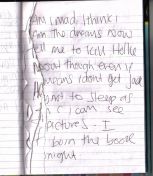 Am I mad, I think I
Am the dreams now
tell me to kill Hollie
now though even if
means I dont get Jack
trying to sleep as
I can see
pictures. I
burn the book
night.